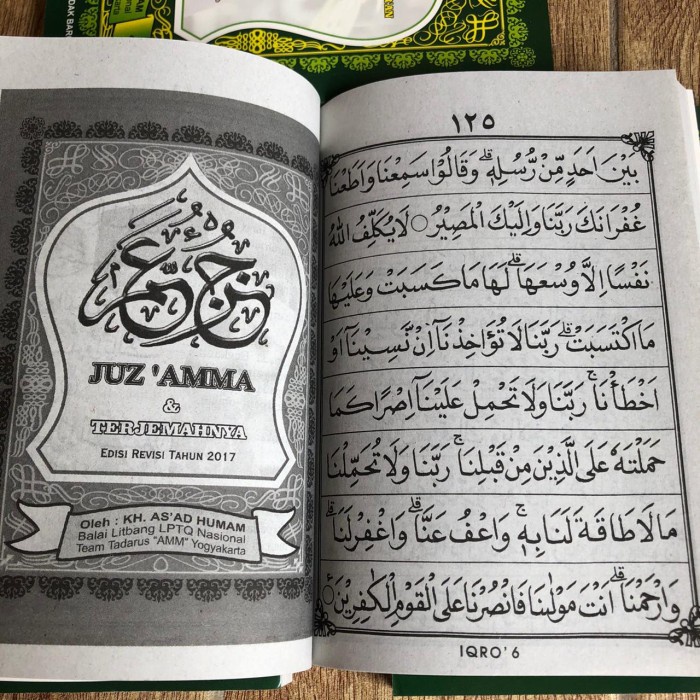 جزء عم
JUZ 'AMMA
&
TERJEMAHNYA
EDISI REVISI TAHUN 2017
Oleh : KH. AS'AD HUMAM
Balai Litbang LPTQ Nasional
Team Tadarus "AMM" Yogyakarta
١٢٥
بَيْنَ اَحَدٍ مِّنْ رُّسُلِهٖ ۗ وَقَالُوْا سَمِعْنَا وَاَطَعْنَا
غُفْرَانَكَ رَبَّنَا وَاِلَيْكَ الْمَصِيْرُ ○ لَا يُكَلِّفُ اللّٰهُ
نَفْسًا اِلَّا وُسْعَهَا ۗ لَهَا مَا كَسَبَتْ وَعَلَيْهَا
مَا اكْتَسَبَتْ ۗ رَبَّنَا لَا تُؤَاخِذْنَآ اِنْ نَّسِيْنَآ اَوْ
اَخْطَأْنَا ۚ رَبَّنَا وَلَا تَحْمِلْ عَلَيْنَآ اِصْرًا كَمَا
حَمَلْتَهٗ عَلَى الَّذِيْنَ مِنْ قَبْلِنَا ۚ رَبَّنَا وَلَا تُحَمِّلْنَا
مَا لَا طَاقَةَ لَنَا بِهٖ ۚ وَاعْفُ عَنَّا ۗ وَاغْفِرْ لَنَا ۗ
وَارْحَمْنَا ۗ اَنْتَ مَوْلٰىنَا فَانْصُرْنَا عَلَى الْقَوْمِ الْكٰفِرِيْنَ ○
IQRO' 6